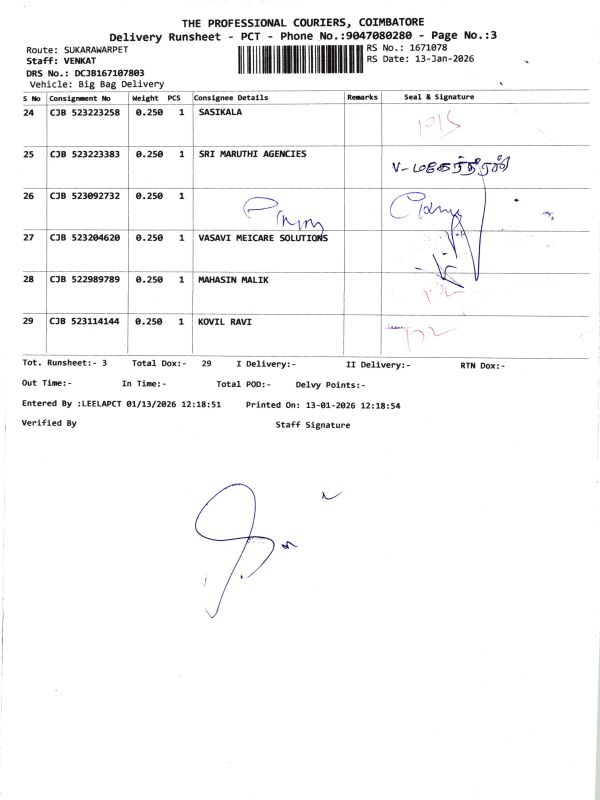 THE PROFESSIONAL COURIERS, COIMBATORE
Delivery Runsheet - PCT - Phone No.:9047080280 - Page No.:3
Route: SUKARAWARPET
RS No.: 1671078
Staff: VENKAT
RS Date: 13-Jan-2026
DRS No.: DCJB167107803
Vehicle: Big Bag Delivery
S No Consignment No Weight PCS Consignee Details Remarks Seal & Signature
24 CJB 523223258 0.250 1 SASIKALA
25 CJB 523223383 0.250 1 SRI MARUTHI AGENCIES
26 CJB 523092732 0.250 1
27 CJB 523204620 0.250 1 VASAVI MEICARE SOLUTIONS
28 CJB 522989789 0.250 1 MAHASIN MALIK
29 CJB 523114144 0.250 1 KOVIL RAVI
Tot. Runsheet:- 3 Total Dox:- 29 I Delivery:- II Delivery:- RTN Dox:-
Out Time:- In Time:- Total POD:- Delvy Points:-
Entered By :LEELAPCT 01/13/2026 12:18:51 Printed On: 13-01-2026 12:18:54
Verified By Staff Signature